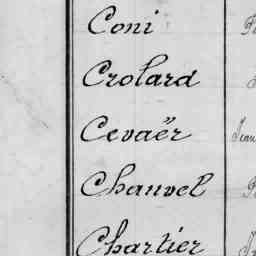 Coni
Crolard
Cevaër
Jean
Chauvel
Chartier